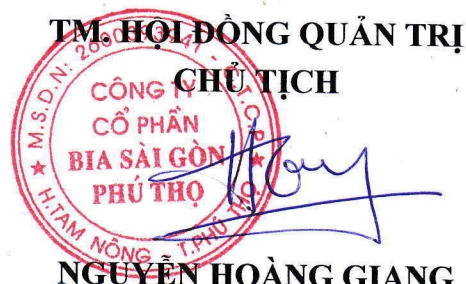 TM. HỘI ĐỒNG QUẢN TRỊ
CHỦ TỊCH
M.S.D.N:
C.T.C.P
CÔNG TY
CỔ PHẦN
BIA SÀI GÒN
PHÚ THỌ
H.TAM NÔNG T.PHÚ THỌ
NGUYỄN HOÀNG GIANG